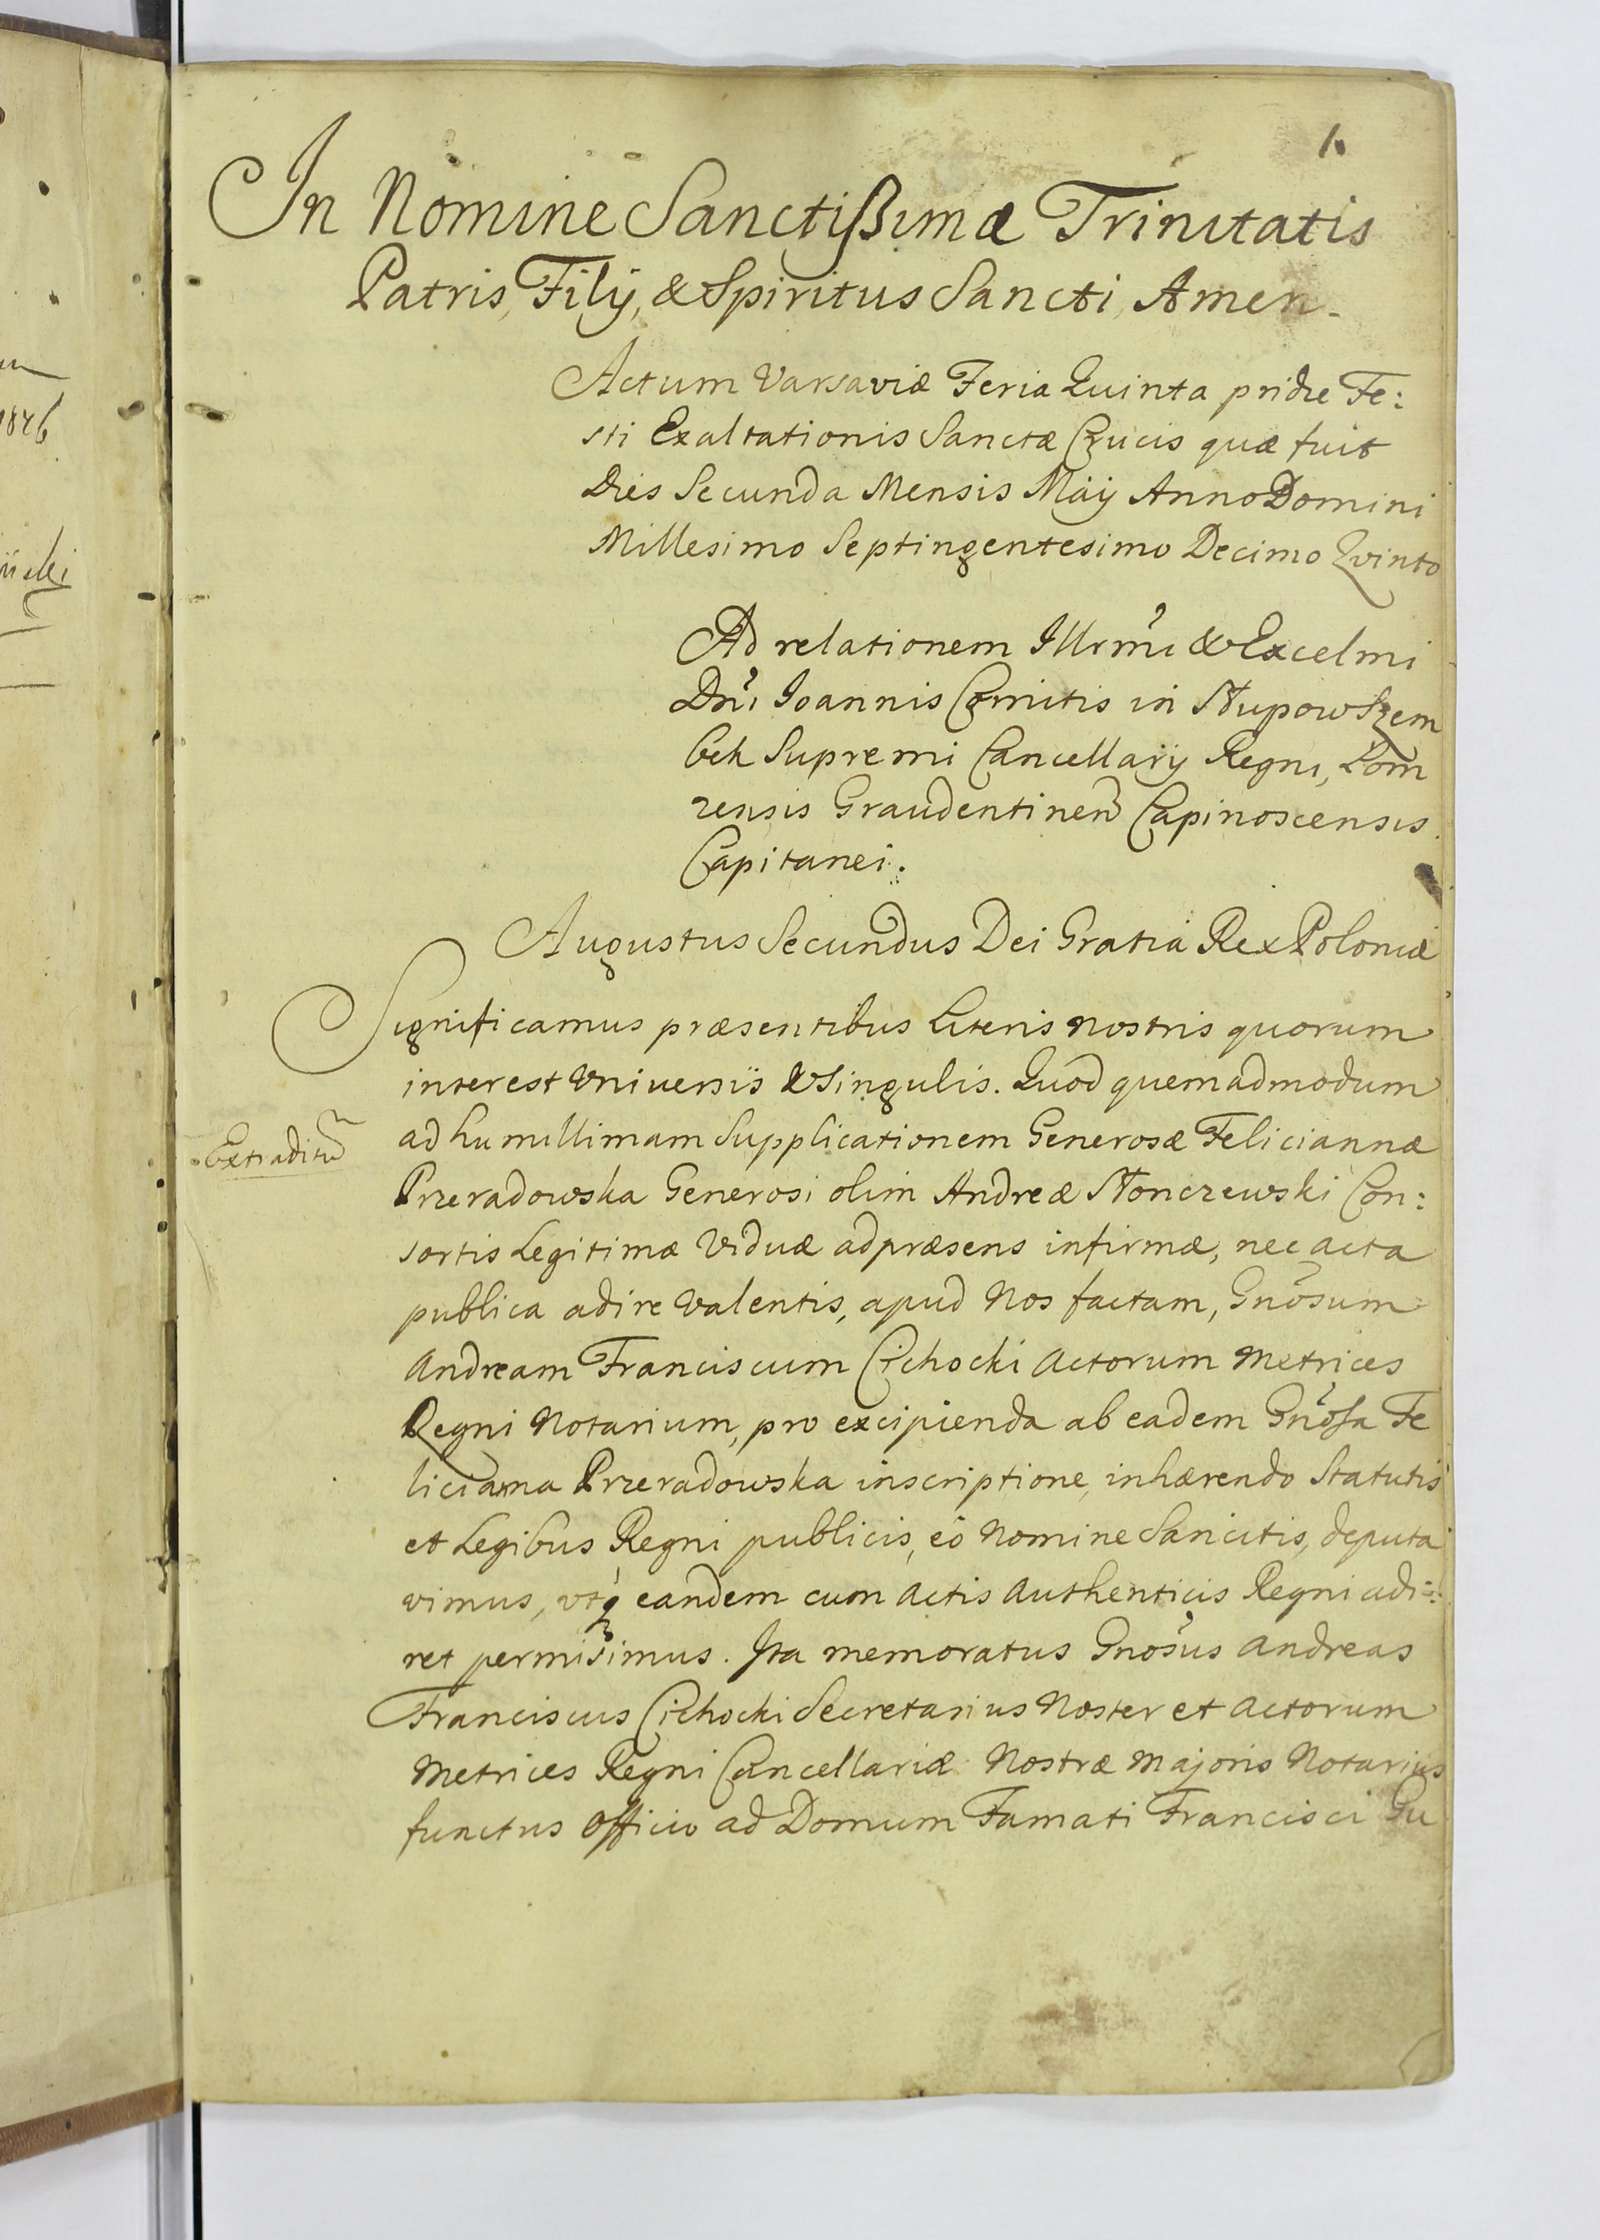 1.
In Nomine Sanctißimæ Trinitatis
Patris, Filij, & Spiritus Sancti, Amen.
Actum Varsaviæ Feria Quinta pridie Fe:
sti Exaltationis Sanctæ Crucis quæ fuit
Dies Secunda Mensis Maij Anno Domini
Millesimo Septingentesimo Decimo Qvinto
Ad relationem Illrmi & Excelmi
Dni Joannis Comitis in Słupow Szem
bek Supremi Cancellarij Regni, Lom
zensis Graudentinen Capinoscensis
Capitanei.
Augustus Secundus Dei Gratia Rex Poloniæ
Significamus præsentibus Literis nostris quorum
interest Vniversis & Singulis. Quod quemadmodum
ad humillimam Supplicationem Generosæ Feliciannæ
Przeradowska Generosi olim Andreæ Słonczewski Con:
sortis Legitimæ Viduæ ad præsens infirmæ, nec acta
publica adire Valentis, apud Nos factam, Gnosum
Andream Franciscum Cichocki Actorum Metrices
Regni Notarium, pro excipienda ab eadem Gnosa Fe
licianna Przeradowska inscriptione, inhærendo Statutis
et Legibus Regni publicis, eo Nomine Sancitis, deputa
vimus, vtq eandem cum Actis Authenticis Regni adi:
ret permisimus. Ita memoratus Gnosus Andreas
Franciscus Cichocki Secretarius Noster et Actorum
Metrices Regni Cancellariæ Nostræ Majoris Notarius
functus Officio ad Domum Famati Francisci Gu
Extraditũ
1826